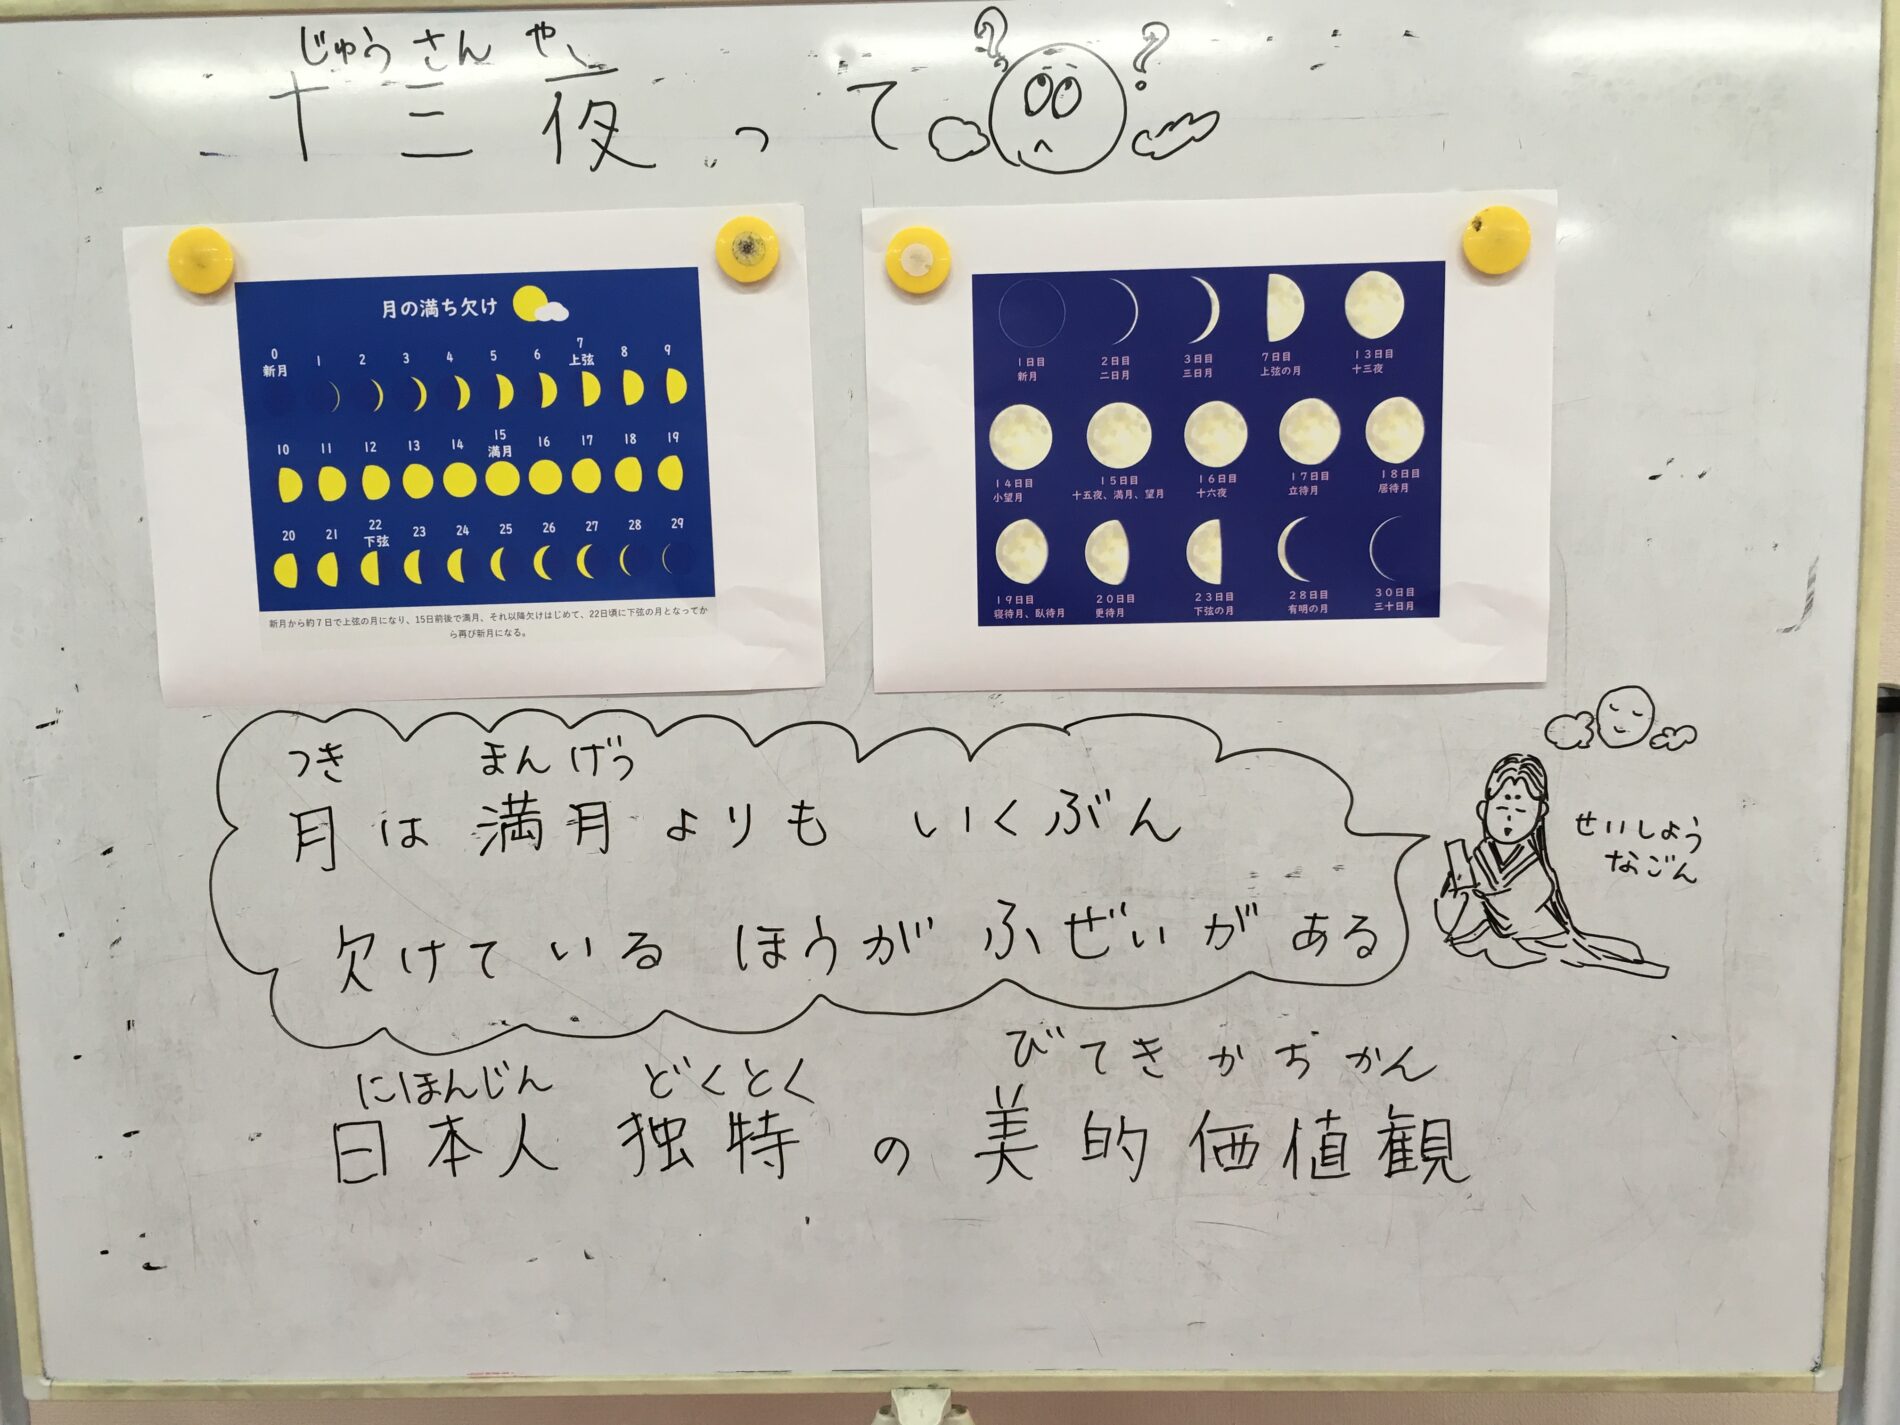 じゅうさんや
十三夜って
? ?
月の満ち欠け
0 1 2 3 4 5 6 7 8 9
新月 上弦
10 11 12 13 14 15 16 17 18 19
満月
20 21 22 23 24 25 26 27 28 29
下弦
新月から約7日で上弦の月になり、15日前後で満月、それ以降欠けはじめて、22日頃に下弦の月となってか
ら再び新月になる。
1日目 2日目 3日目 7日目 13日目
新月 二日月 三日月 上弦の月 十三夜
14日目 15日目 16日目 17日目 18日目
小望月 十五夜、満月、望月 十六夜 立待月 居待月
19日目 20日目 23日目 28日目 30日目
寝待月、臥待月 更待月 下弦の月 有明の月 三十日月
つき まんげつ
月は満月よりも いくぶん
欠けている ほうが ふぜいがある
せいしよう
なごん
にほんじん どくとく びてきかちかん
日本人 独特の美的価値観